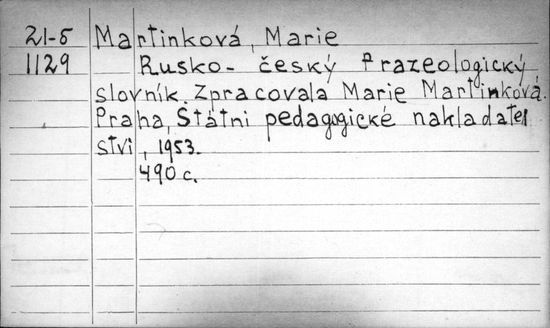 21-5 Martinková, Marie
1129 Rusko-český frazeologický
slovník. Zpracovala Marie Martinková.
Praha, Státni pedagogické nakladatel
stvi, 1953.
490 c.